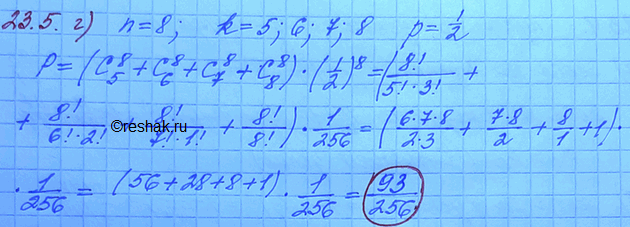 23.5. г) n=8; k=5; 6; 7; 8 p=1/2
P=(C_5^8+C_6^8+C_7^8+C_8^8)·(1/2)^8=(8!/(5!·3!)+
+8!/(6!·2!)+8!/(7!·1!)+8!/8!)·1/256=((6·7·8)/(2·3)+(7·8)/2+8/1+1)·
·1/256=(56+28+8+1)·1/256=93/256.
©reshak.ru